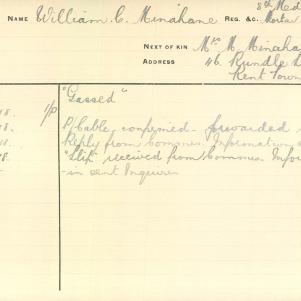 8th Med
NAME William C. Minahane REG. &C. Morta
NEXT OF KIN Mrs M. Minaha
ADDRESS 46. Rundle S
Kent Town
"Gassed"
18. 1/P
18. P/Cable, confirmed - forwarded
18. Reply from Commns. Information
18. "Slip" received from Commns. Infor
-in sent Inquirer